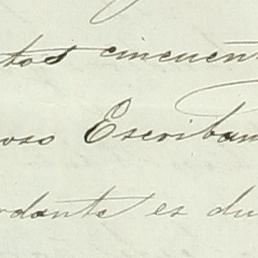 tos cincuen
oso Escriban
rdante es du